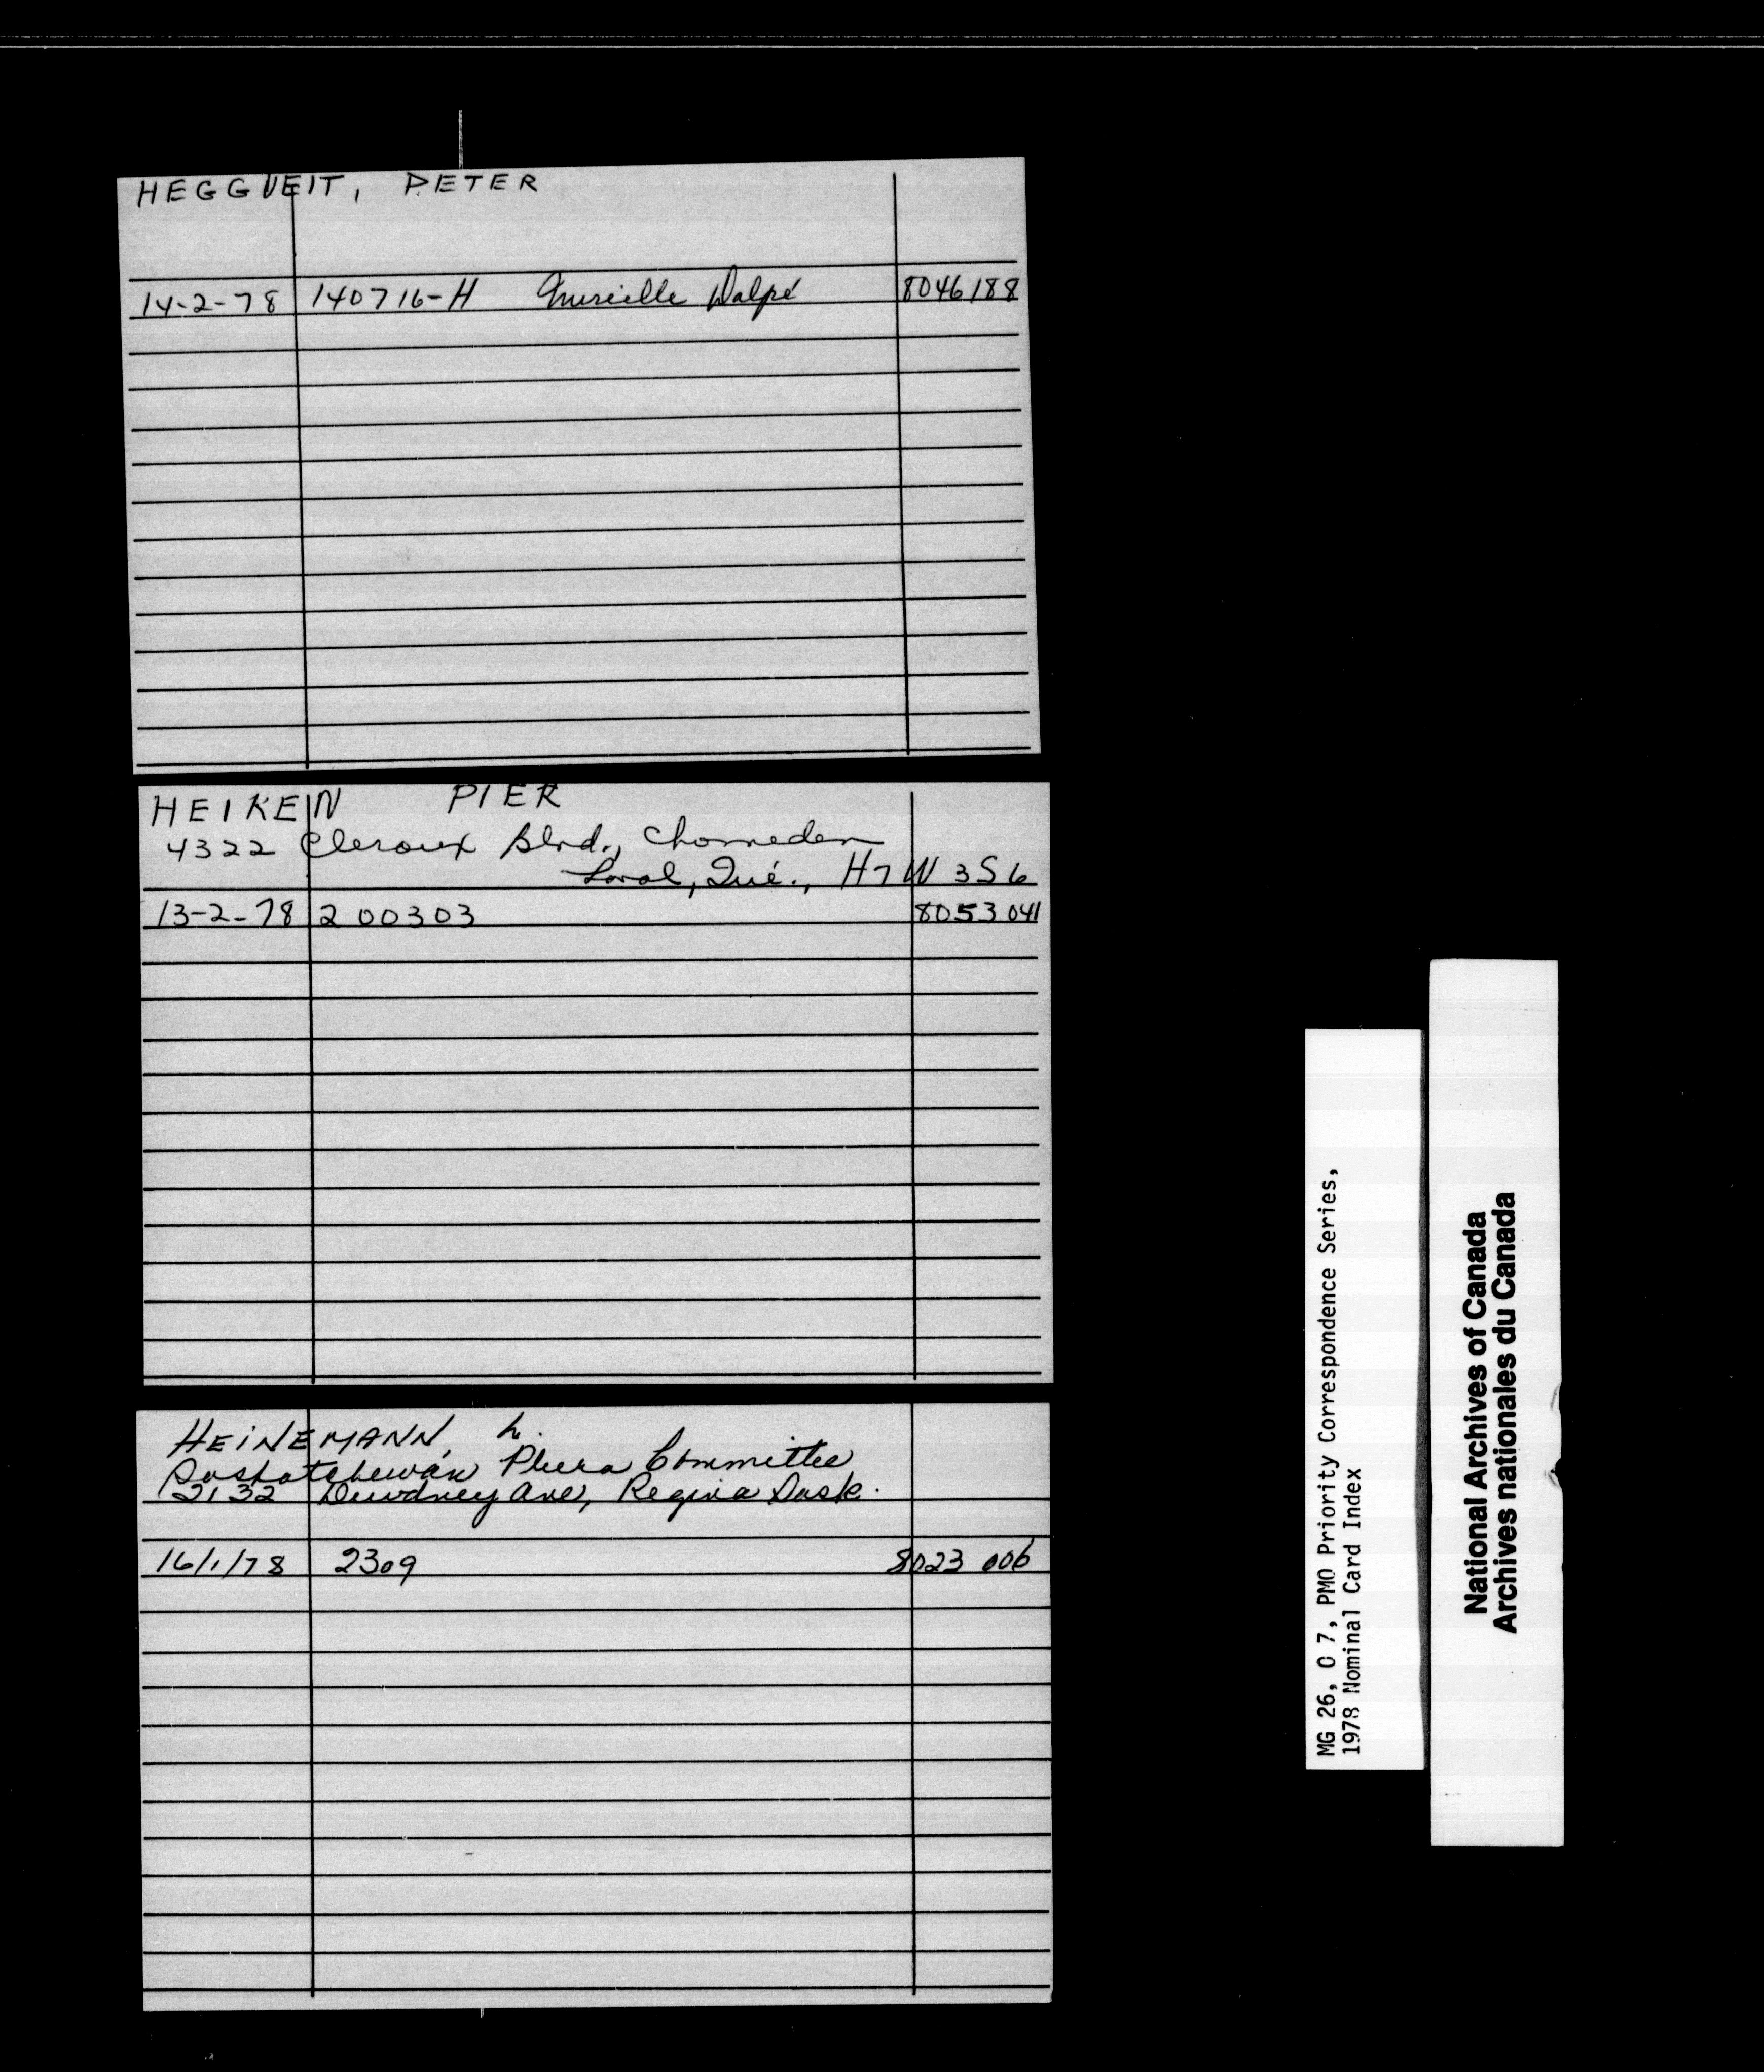 HEGGVEIT, PETER
14-2-78 140716-H Murielle Dalpé 8046188
HEIKEIN PIER
4322 Cleroux Blvd., Chomeden
Laval, Qué., H7W 3S6
13-2-78 200303 8053041
HEINEMANN, L.
Saskatchewan Plura Committee
2132 Dewdney Ave, Regina Sask.
16/1/78 2309 8023 006
MG 26, O 7, PMO Priority Correspondence Series,
1978 Nominal Card Index
National Archives of Canada
Archives nationales du Canada